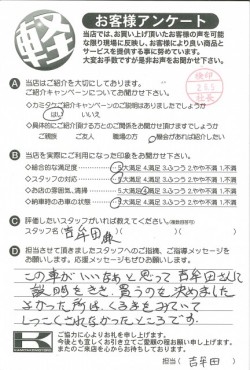 軽
お客様アンケート
当店では、お買い上げ頂いたお客様の声を可能
な限り現場に反映し、お客様により良い商品と
サービスを提供する事に努めています。
大変お手数ですが是非お声をお聞かせ下さい。
A 当店はご紹介を大切にしております。
ご紹介キャンペーンについてお聞かせ下さい。
◇カミタケご紹介キャンペーンのご説明はありましたでしょうか
はい いいえ
◇具体的にご紹介頂ける方とのご関係をお聞かせ頂けますでしょうか
ご親族 ご友人 職場の方 機会があれば紹介したい
B 当店を実際にご利用になった印象をお聞かせ下さい。
◇総合的な満足度 5大満足 4満足 3ふつう 2やや不満 1不満
◇スタッフの対応 5大満足 4満足 3ふつう 2やや不満 1不満
◇お店の雰囲気、清掃 5大満足 4満足 3ふつう 2やや不満 1不満
◇納車時のお車の状態 5大満足 4満足 3ふつう 2やや不満 1不満
C 評価したいスタッフがいれば教えてください。(複数回答可)
スタッフ名( 吉牟田 様 )
D 担当させて頂きましたスタッフへのご指摘、ご指導メッセージを
お願い致します。応援メッセージもぜひお願い致します。
この車がいいなぁと思って吉牟田さんに
説明をきき、買うのを決めました
よかった所はくるまをみていて
しつこくされなかったところです。
ご協力に心よりお礼を申し上げます。
今後とも宜しくお引き立てご愛顧の程お願い申し上げます。
またのご来店を心からお待ちしております。
担当( 吉牟田 )